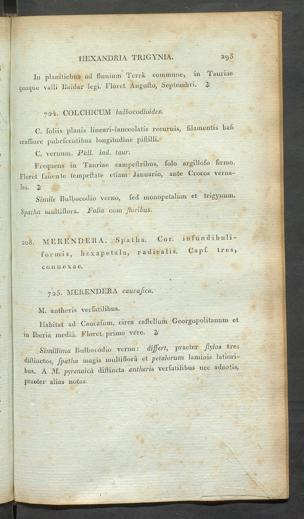 HEXANDRIA TRIGYNIA. 293
In planitiebus ad flumium Terek commune, in Tauriae
quoque valli Baidar legi. Floret Augusto, Septembri. ♃
724. COLCHICUM bulbocodioides.
C. foliis planis lineari-lanceolatis recurvis, filamentis basi
crassiore pubescentibus longitudine pistilli.
C. vernum. Pall. ind. taur.
Frequens in Tauriae campestribus, solo argilloso firmo.
Floret favente tempestate etiam Januario, ante Crocos verna-
les. ♃
Simile Bulbocodio verno, sed monopetalum et trigynum.
Spatha multiflora. Folia cum floribus.
208. MERENDERA. Spatha. Cor. infundibuli-
formis, hexapetala, radicalis. Capf. tres,
connexae.
725. MERENDERA caucasica.
M. antheris versatilibus.
Habitat ad Caucasum, circa castellum Georgopolitanum et
in Iberia media. Floret primo vere. ♃
Simillima Bulbocodio verno: differt, praeter stylos tres
distinctos, spatha magis multiflora et petalorum laminis latiori-
bus. A M. pyrenaica distincta antheris versatilibus nec adnatis,
praeter alias notas.